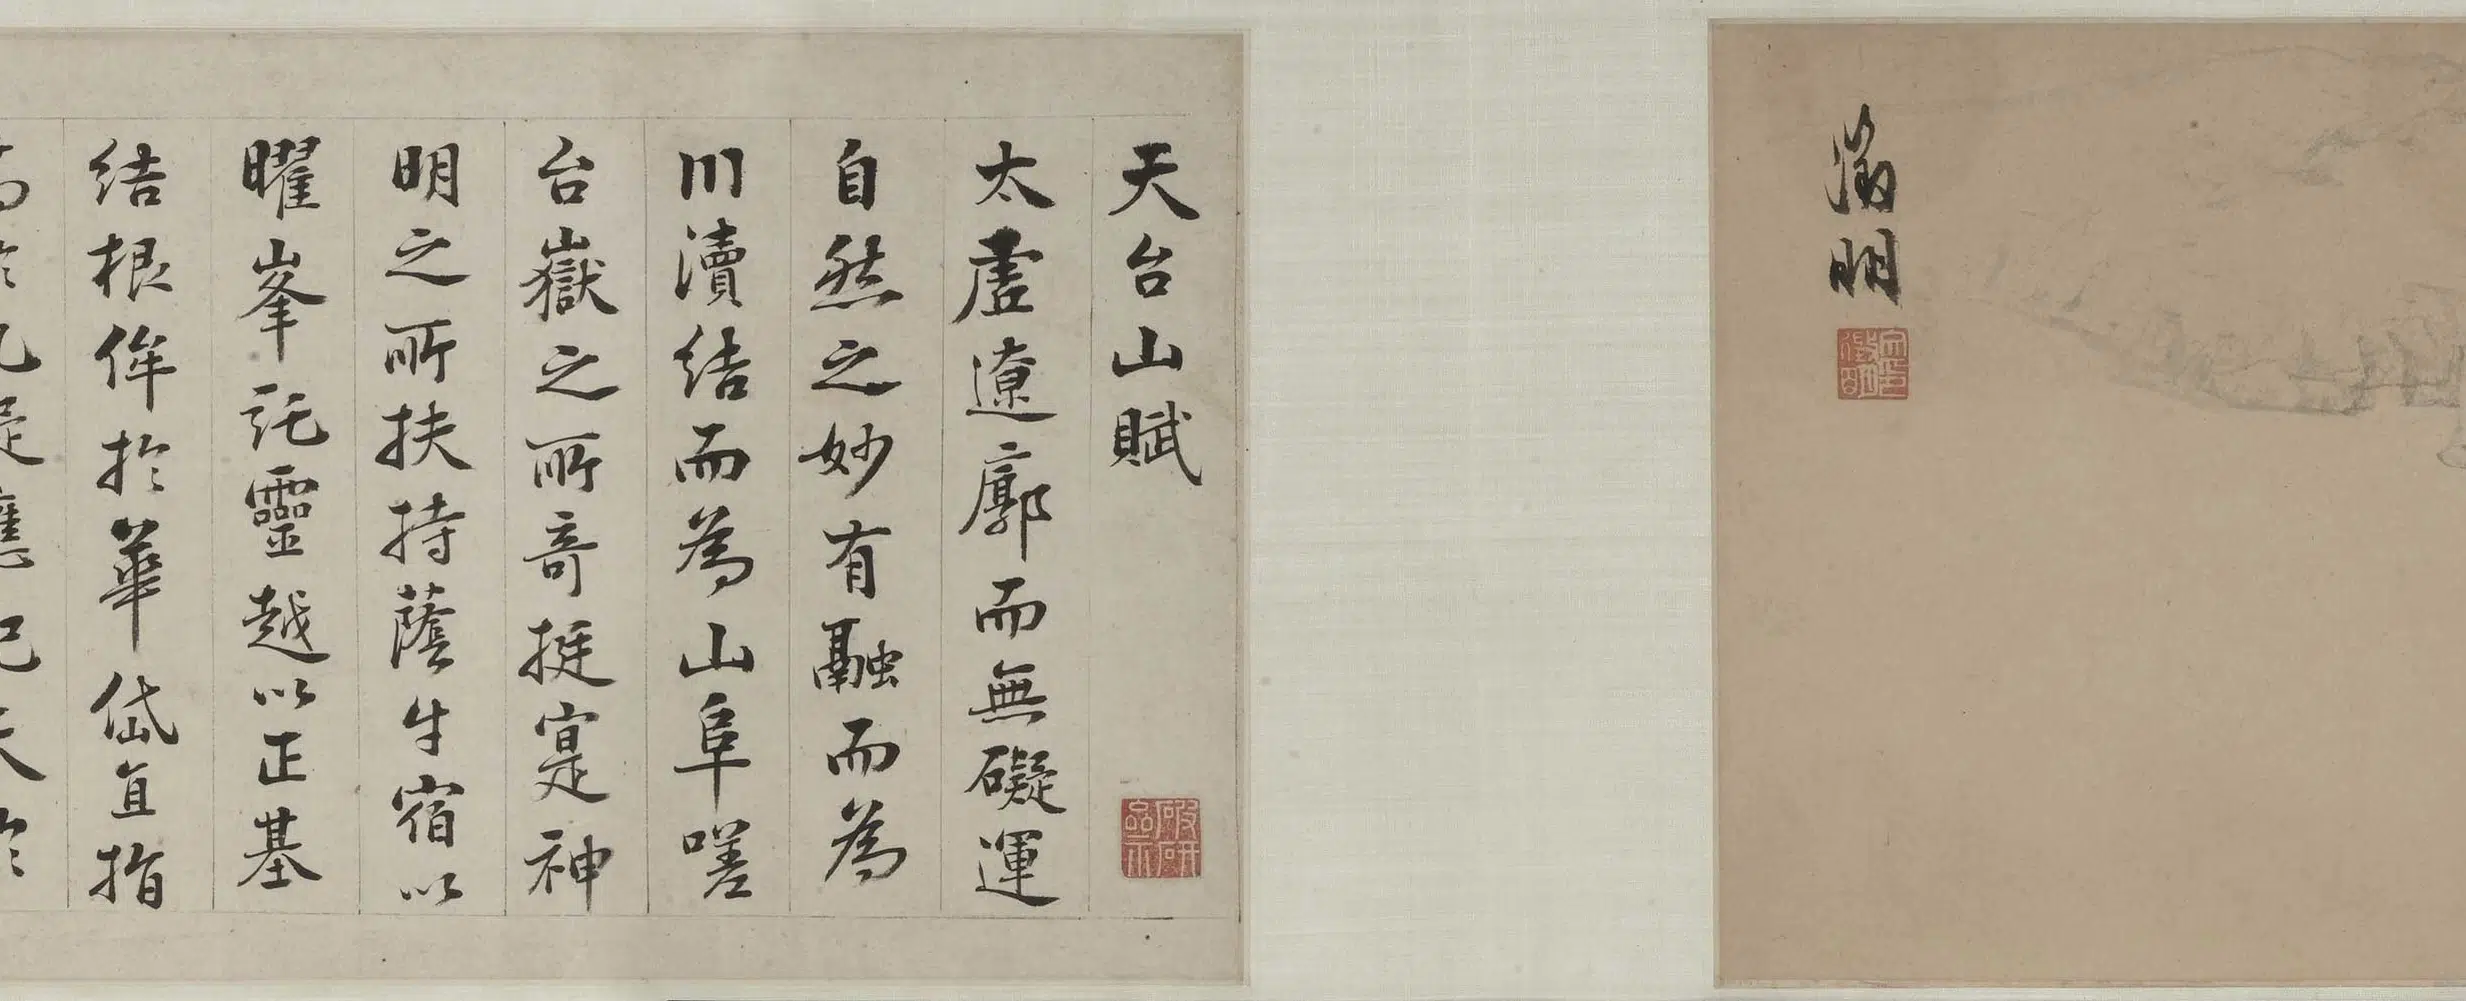 徵明
天台山賦
太虛遼廓而無礙運
自然之妙有融而為
川瀆結而為山阜嗟
台嶽之所奇挺寔神
明之所扶持蔭牛宿以
曜峯託靈越以正基
結根侔於華岱直指